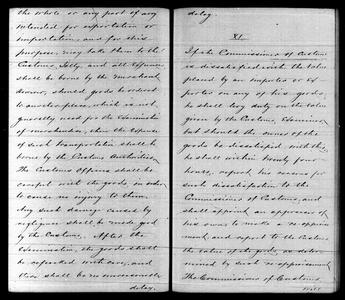 the whole or any part of any
intended for exportation or
importation, and for this
purpose, may take them to the
Customs, Jetty, and all expenses
shall be borne by the merchant
owner, should goods be ordered
to another place, which is not
generally used for the
of merchandise, then the expense
of such transportation shall be
borne by the Customs Authorities
The Customs Officers shall be
careful with the goods in order
to cause no injury to them.
Any such damage caused by
negligence shall be made good
by the Customs. After the
Examination, the goods shall
be repacked with care, and
there shall be no unnecessary
delay.
delay.
XI.
If the Commissioner of Customs
is dissatisfied with the value
placed by an importer or ex-
porter on any of his goods,
he shall levy duty on the value
given by the Customs, Examiner,
but should the owner of the
goods be dissatisfied with this,
he shall within twenty four
hours, report his reasons for
such dissatisfaction to the
Commissioner of Customs, and
shall appoint an appraiser of
his own to make a re-appraise-
ment, and report to the Customs
the value of the goods, as deter-
mined by such re-appraisement
The Commissioner of Customs